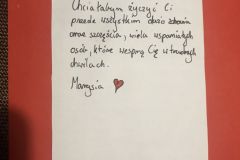 Chciałabym życzyć Ci
przede wszystkim dużo zdrowia
oraz szczęścia, wielu wspaniałych
osób, które wesprą Cię w trudnych
chwilach.
Marysia